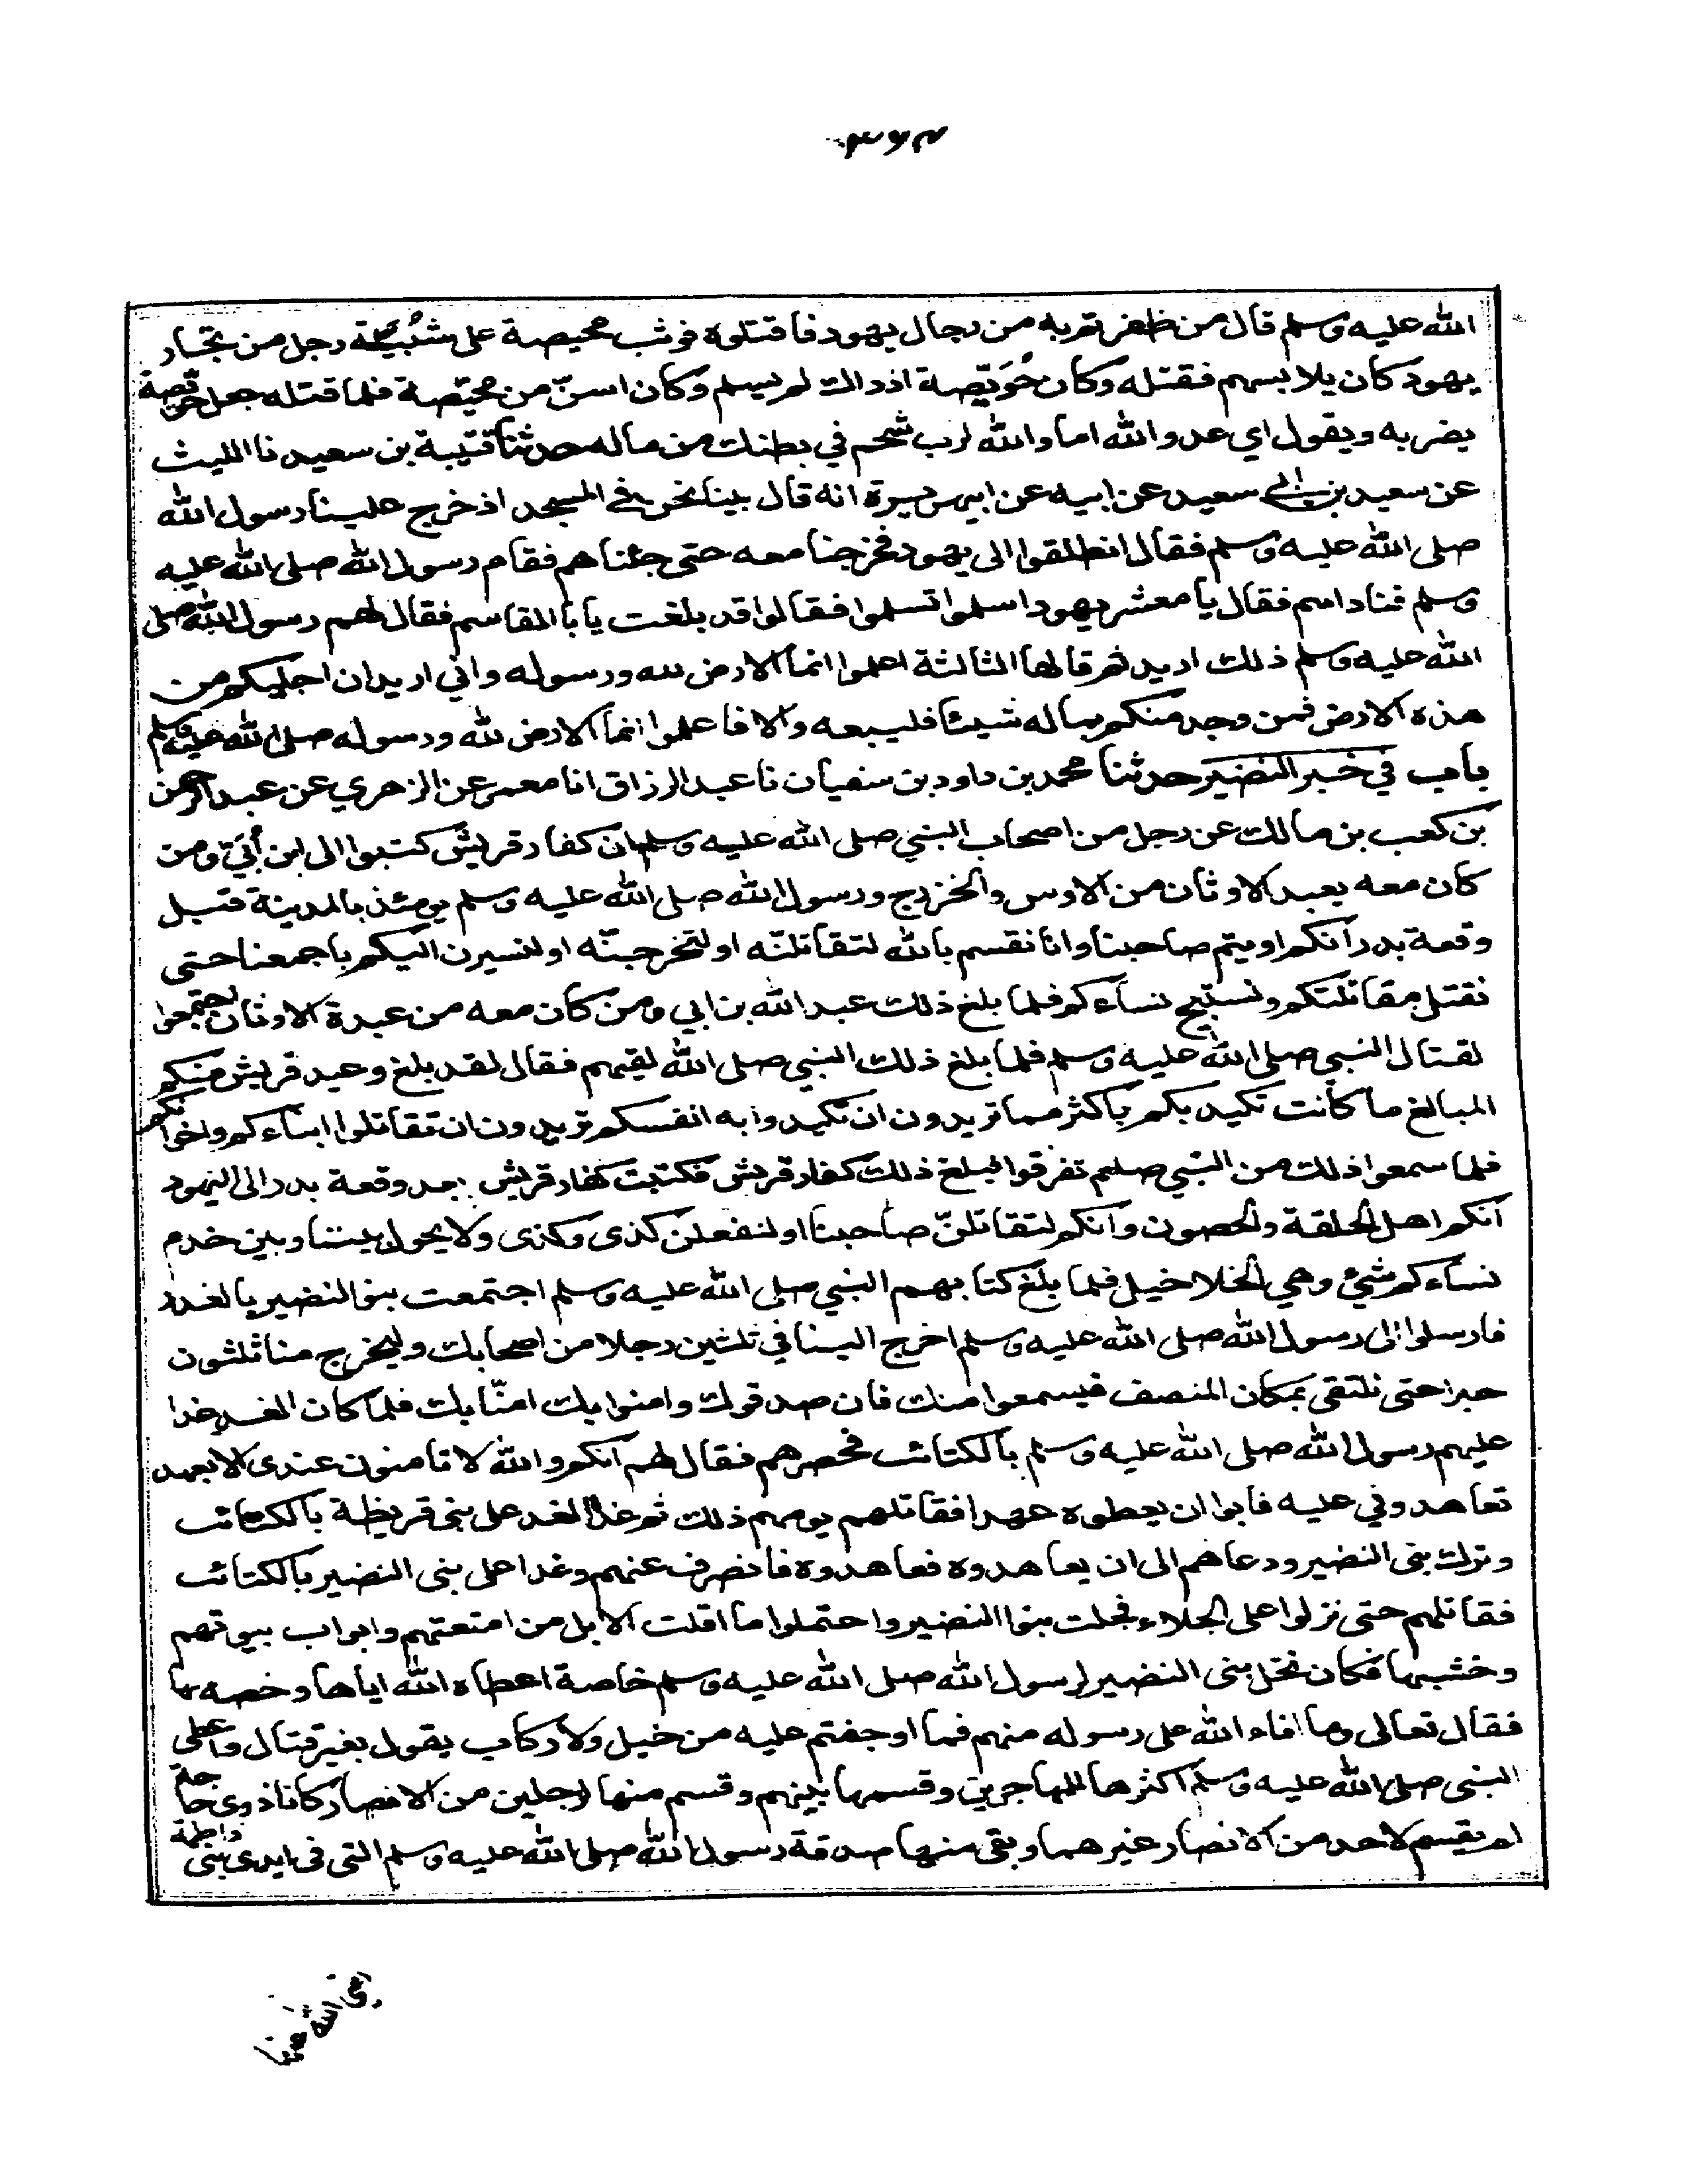 الله عليه وسلم قال من ظفرتم به من رجال يهود فاقتلوه فوثب محيصة على شُبَيبَة رجل من تجار
يهود كان يلابسهم فقتله وكان حُوَيّصة اذ ذاك لم يسلم وكان اسنّ من محيّصة فلما قتله جعل حويّصة
يضربه ويقول اي عدو الله اما والله لرب شحم في بطنك من ماله حدثنا قتيبة بن سعيد نا الليث
عن سعيد بن ابي سعيد عن ابيه عن ابي هريرة انه قال بينا نحن في المسجد اذ خرج علينا رسول الله
صلى الله عليه وسلم فقال انطلقوا الى يهود فخرجنا معه حتى جئناهم فقام رسول الله صلى الله عليه
وسلم فناداهم فقال يا معشر يهود اسلموا تسلموا فقالوا قد بلغت يا با القاسم فقال لهم رسول الله صلى
الله عليه وسلم ذلك اريد ثم قالها الثالثة اعلموا انما الارض لله ورسوله واني اريد ان اجليكم من
هذه الارض فمن وجد منكم بماله شيئا فليبعه والا فاعلموا انما الارض لله ورسوله صلى الله عليه وسلم
باب في خبر النضير حدثنا محمد بن داود بن سفيان نا عبد الرزاق انا معمر عن الزهري عن عبد الرحمن
بن كعب بن مالك عن رجل من اصحاب النبي صلى الله عليه وسلم ان كفار قريش كتبوا الى ابن أُبَيّ ومن
كان معه يعبد الاوثان من الاوس والخزرج ورسول الله صلى الله عليه وسلم يومئذ بالمدينة قبل
وقعة بدر انكم اويتم صاحبنا وانا نقسم بالله لتقاتلنّه او لتخرجنّه او لنسيرن اليكم باجمعنا حتى
نقتل مقاتلتكم ونستبيح نساءكم فلما بلغ ذلك عبد الله بن ابي ومن كان معه من عبدة الاوثان اجتمعوا
لقتال النبي صلى الله عليه وسلم فلما بلغ ذلك النبي صلى الله لقيهم فقال لقد بلغ وعيد قريش منكم
المبالغ ما كانت تكيد بكم باكثر مما تريدون ان تكيدوا به انفسكم تريدون ان تقاتلوا ابناءكم واخوانكم
فلما سمعوا ذلك من النبي صلعم تفرقوا فبلغ ذلك كفار قريش فكتبت كفار قريش بعد وقعة بدر الى اليهود
انكم اهل الحلقة والحصون وانكم لتقاتلنّ صاحبنا او لنفعلن كذى وكذى ولا يحول بيننا وبين خدم
نساءكم شيئ وهي الخلاخيل فلما بلغ كتابهم النبي صلى الله عليه وسلم اجتمعت بنو النضير بالغدر
فارسلوا الى رسول الله صلى الله عليه وسلم اخرج الينا في ثلثين رجلا من اصحابك وليخرج منا ثلثون
حبرا حتى نلتقى بمكان المنصف فيسمعوا منك فان صدقوك وامنوا بك امنّا بك فلما كان الغد غدا
عليهم رسول الله صلى الله عليه وسلم بالكتائب فحصرهم فقال لهم انكم والله لا تامنون عندى الا بعهد
تعاهدوني عليه فابوا ان يعطوه عهدا فقاتلهم يومهم ذلك ثم غدا الغد على بنى قريظة بالكتائب
وترك بنى النضير ودعاهم الى ان يعاهدوه فعاهدوه فانصرف عنهم وغدا على بنى النضير بالكتائب
فقاتلهم حتى نزلوا على الجلاء فجلت بنوا النضير واحتملوا ما اقلت الابل من امتعتهم وابواب بيوتهم
وخشبها فكان نخل بنى النضير لرسول الله صلى الله عليه وسلم خاصة اعطاه الله اياها وخصه بها
فقال تعالى وما افاء الله على رسوله منهم فما اوجفتم عليه من خيل ولا ركاب يقول بغير قتال واعطى
النبى صلى الله عليه وسلم اكثرها للمهاجرين وقسمها بينهم وقسم منها لرجلين من الانصار كانا ذوى حاجة
لم يقسم لاحد من الانصار غيرهما وبقى منها صدقة رسول الله صلى الله عليه وسلم التى فى ايدى بنى فاطمة
رضي الله عنها